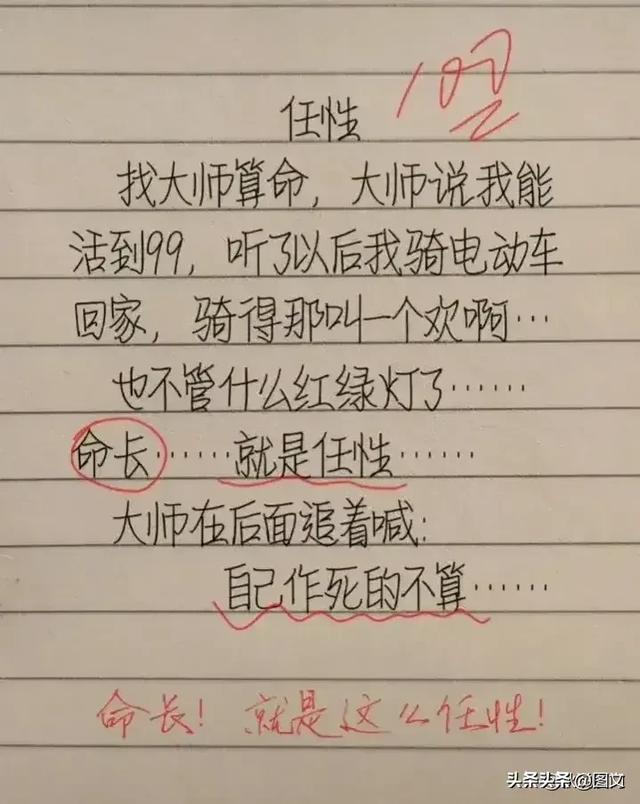 100
任性
找大师算命，大师说我能
活到99，听了以后我骑电动车
回家，骑得那叫一个欢啊…
也不管什么红绿灯了……
命长……就是任性……
大师在后面追着喊：
自己作死的不算……
命长！就是这么任性！
头条 @图文